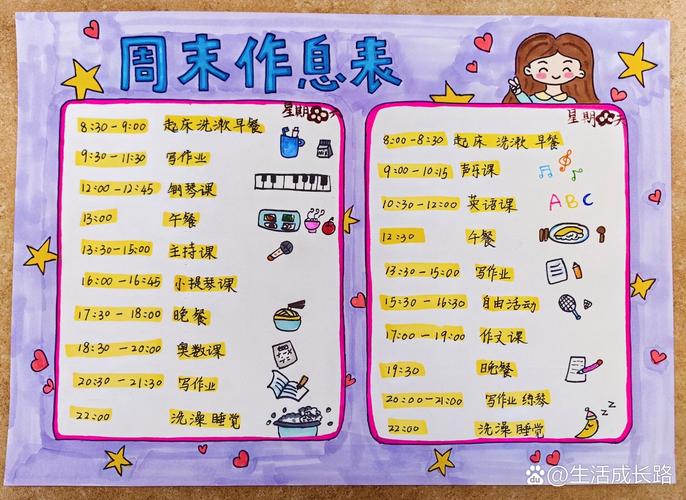 周末作息表
星期
8:30-9:00 起床洗漱早餐
9:30-11:30 写作业
12:00-12:45 钢琴课
13:00 午餐
13:30-15:00 主持课
16:00-16:45 小提琴课
17:30-18:00 晚餐
18:30-20:00 奥数课
20:30-21:30 写作业
22:00 洗澡 睡觉
星期
8:00-8:30 起床 洗漱 早餐
9:00-10:15 声乐课
10:30-12:00 英语课 ABC
12:30 午餐
13:30-15:00 写作业
15:30-16:30 自由活动
17:00-19:00 作文课
19:30 晚餐
20:00-21:00 写作业 练琴
22:00 洗澡 睡觉
z z z
Bai du @生活成长路